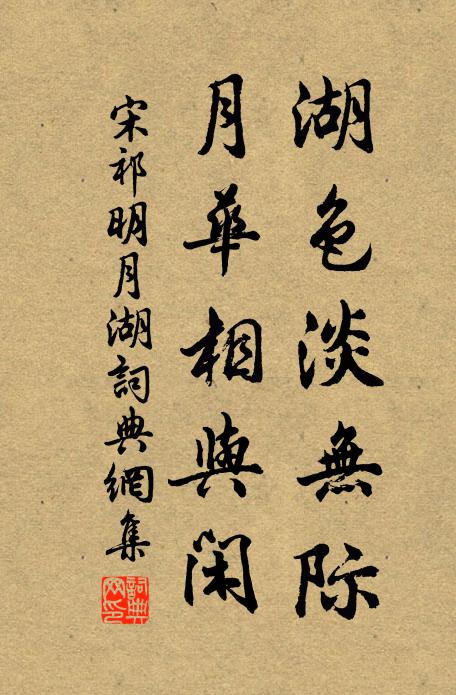 湖色淡無际
月華相與閑
宋祁明月湖詞典網集
詞典网印